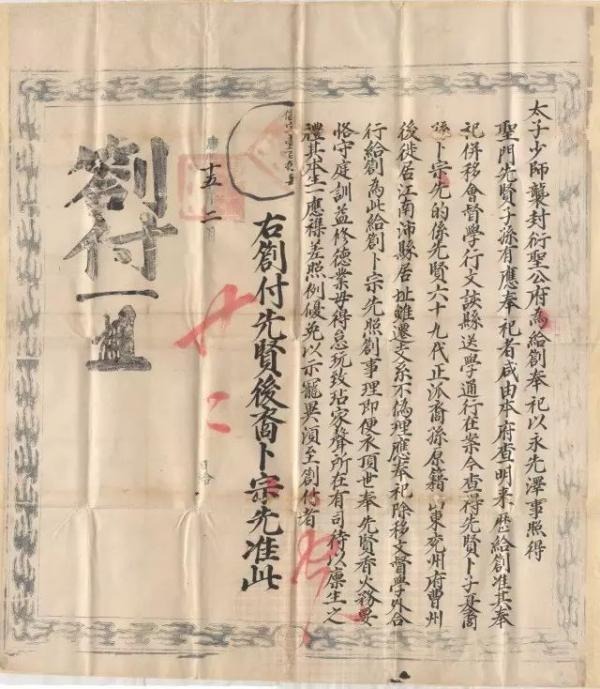 太子少師襲封衍聖公府為給劄奉祀以永先澤事照得
聖門先賢子孫有應奉祀者咸由本府查明來歷給劄准其奉
祀併移會督學行文該縣送學通行在案今查得先賢卜子夏裔
孫卜宗先的係先賢六十九代正派裔孫原籍山東兖州府曹州
後徙居江南沛縣居址雖遷支系不偽理應奉祀除移文督學外合
行給劄為此給劄卜宗先照劄事理即便永頂世奉先賢香火務要
恪守庭訓益修德業毋得怠玩致玷家聲所在有司待以廩生之
禮其本生一應襍差照例優免以示寵異須至劄付者
右劄付先賢後裔卜宗先准此
康
十五
二
廿二
劄付一